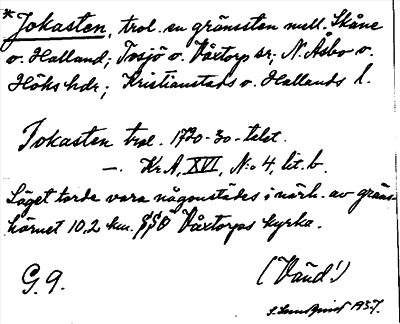 *Jokasten, trol. en gränssten mell. Skåne
o. Halland; Tosjö o. Våxtorp sr; N. Åsbo o.
Höks hdr; Kristianstads o. Hallands l.
Jokasten trol. 1720-30-talet.
—. Kr.A, XVI, N:o 4, lit. b.
Läget torde vara någonstädes i närh. av gräns-
hörnet 10,2 km. SSÖ Våxtorps kyrka.
G. 9.
(Vänd!)
S. Lundquist 1937.